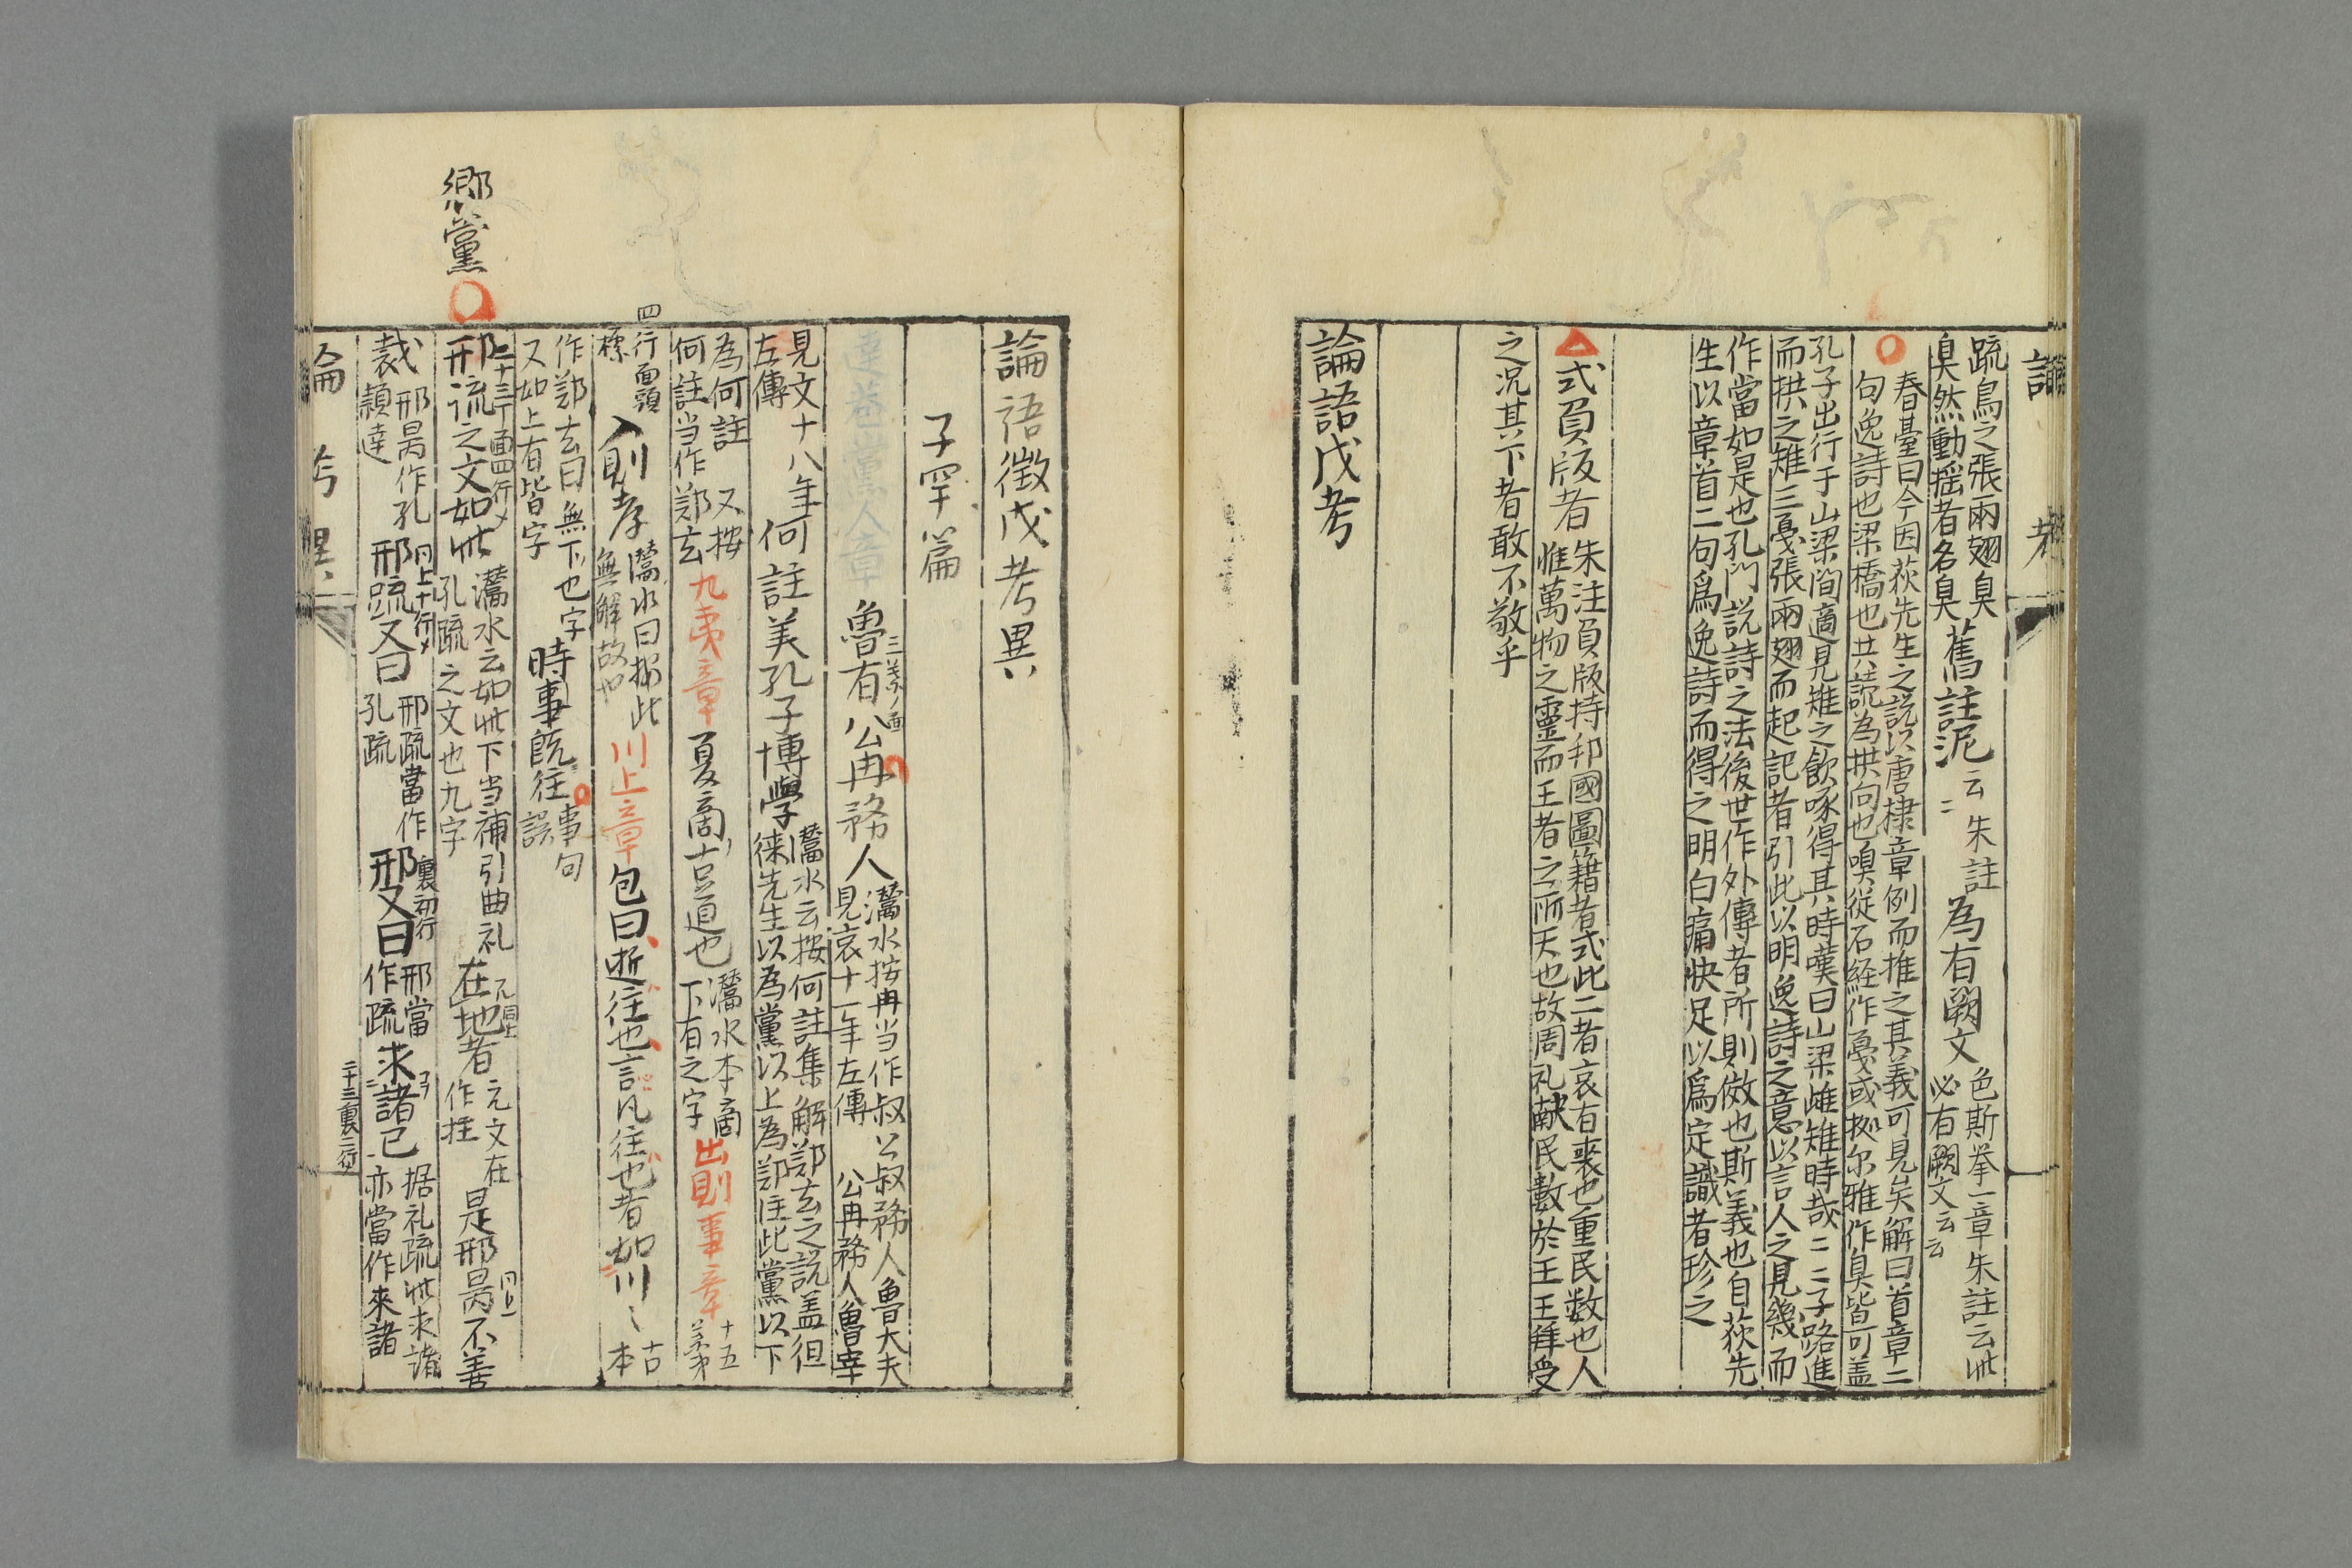 論 考
疏鳥之張兩翅臭
臭然動揺者名臭
舊註泥
云朱註
為有闕文
色斯挙一章朱註云此
必有闕文云云
春臺曰今因荻先生之説以唐棣章例而推之其義可見矣解曰首章二
句逸詩也梁橋也共読為拱向也嗅従石経作戞或拠尓雅作臭皆可盖
孔子出行于山梁間適見雉之飲啄得其時嘆曰山梁雌雉時哉二二子路進
而拱之雉三戞張兩翅而起記者引此以明逸詩之意以言人之見幾而
作當如是也孔門説詩之法後世作外傳者所則倣也斯義也自荻先
生以章首二句爲逸詩而得之明白痛快足以爲定識者珍之
式負版者
朱注負版持邦國圖籍者式此二者哀有喪也重民数也人
惟萬物之靈而王者之所天也故周礼献民數於王王拝受
之况其下者敢不敬乎
論語戊考
論語徴戊考異
子罕篇
達巷黨人章
魯有公冉務人
灊水按冉当作叔公叔務人魯大夫
見哀十一年左傳 公冉務人魯宰
見文十八年
左傳
何註美孔子博學
灊水云按何註集解鄭玄之説盖但
徠先生以為黨以上為鄭注此黨以下
為何註 又按
何註当作鄭玄
九夷章
夏商古道也
灊水本商
下有之字
出則事章
十五
四行面頭
標
入則孝
灊水曰拠此
無解故也
川上章
包曰逝往也言凡往也者如川
古
本
作鄭玄曰無下也字
又如上有皆字
時事既往
事句
誤
鄉黨
二十三丁面四行
邢疏之文如此
灊水云如此下当補引曲礼
孔疏之文也九字
在地者
元文在
作拄
是邢昺不善
裁
邢昺作孔
頴達
同上十行
邢疏又曰
邢疏當作
孔疏
裏初行
邢又曰
邢當
作疏
求諸已
据礼疏此求諸
亦當作來諸
二十三裏二行
論 考 異